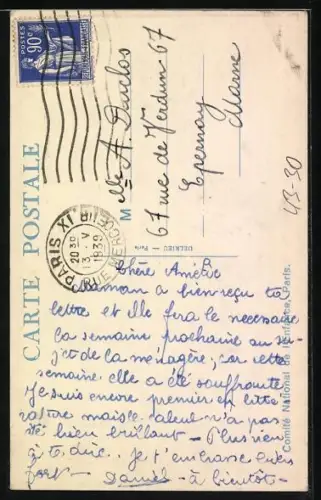 POSTES
90c
REPUBLIQUE FRANÇAISE
CARTE POSTALE
PARIS XI
20 30
13 · V
1939
RUE MERCŒUR
M lle A. Duclos
67 rue de Verdun 67
Epernay
Marne
43-30
DELRIEU - Paris
Comité National de l'Enfance, Paris.
Chère
Maman a bien reçu ta
lettre et elle fera le nécessaire
la semaine prochaine au su-
jet de la ménagère; car cette
semaine elle a été souffrante
Je suis encore premier en litté
rature mais le calcul n'a pas
été bien brillant - Plus rien
à te dire. Je t'embrasse bien
fort - Daniel - à bientôt -